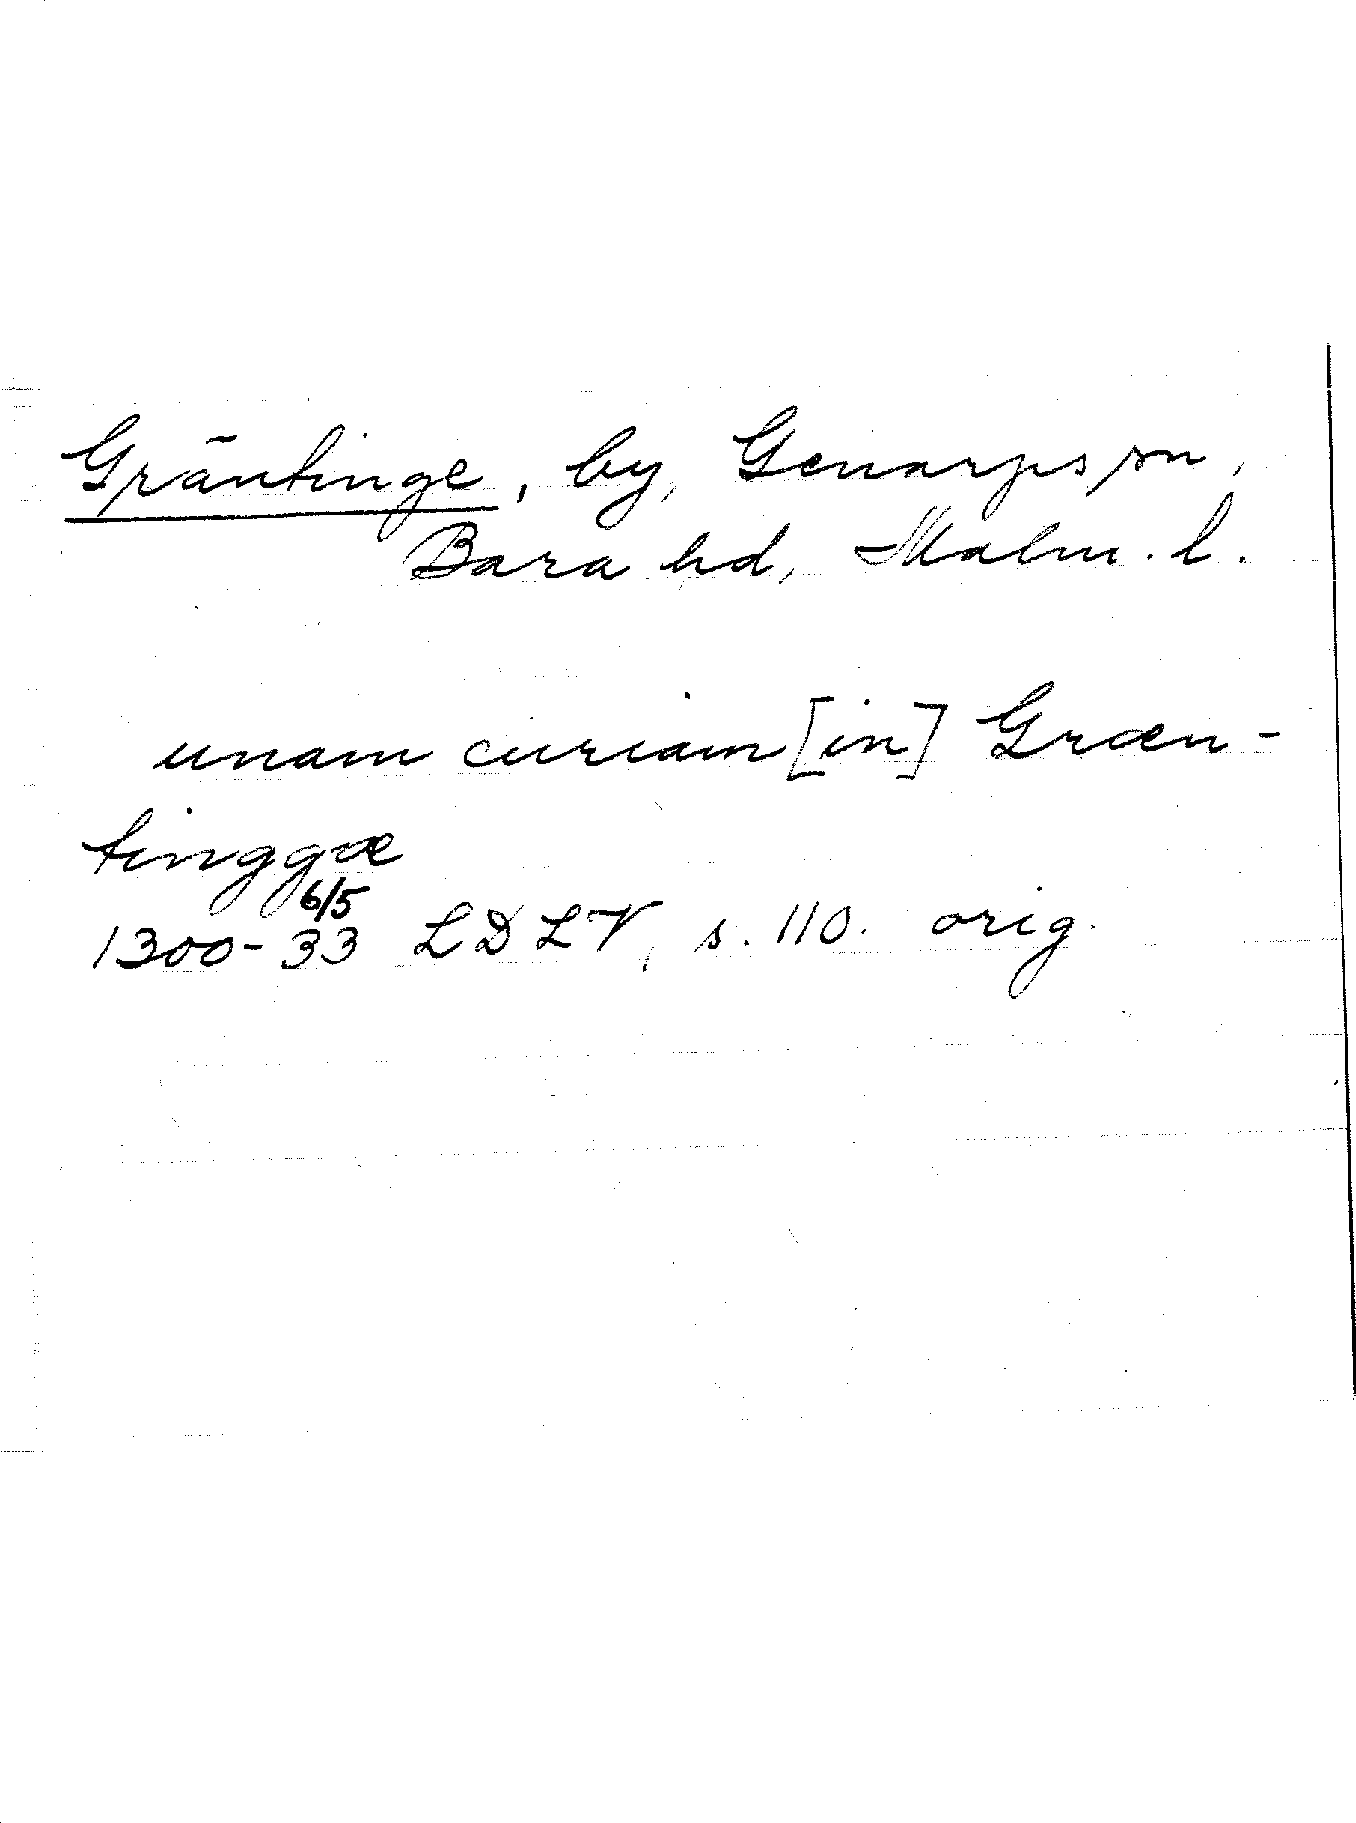 Gräntinge, by, Genarps sn,
Bara hd, Malm. l.
unam curiam [in] Græn-
tinggæ
1300-33 6/5 LDLV, s. 110. orig.